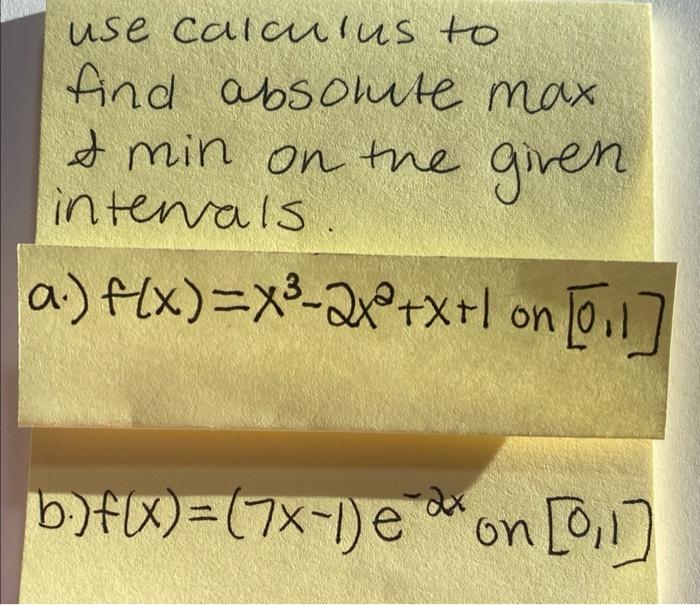 use calculus to
find absolute max
& min on the given
intervals.
a.) f(x)=x³-2x²+x+1 on [0,1]
b.) f(x)=(7x-1)e⁻²ˣ on [0,1]